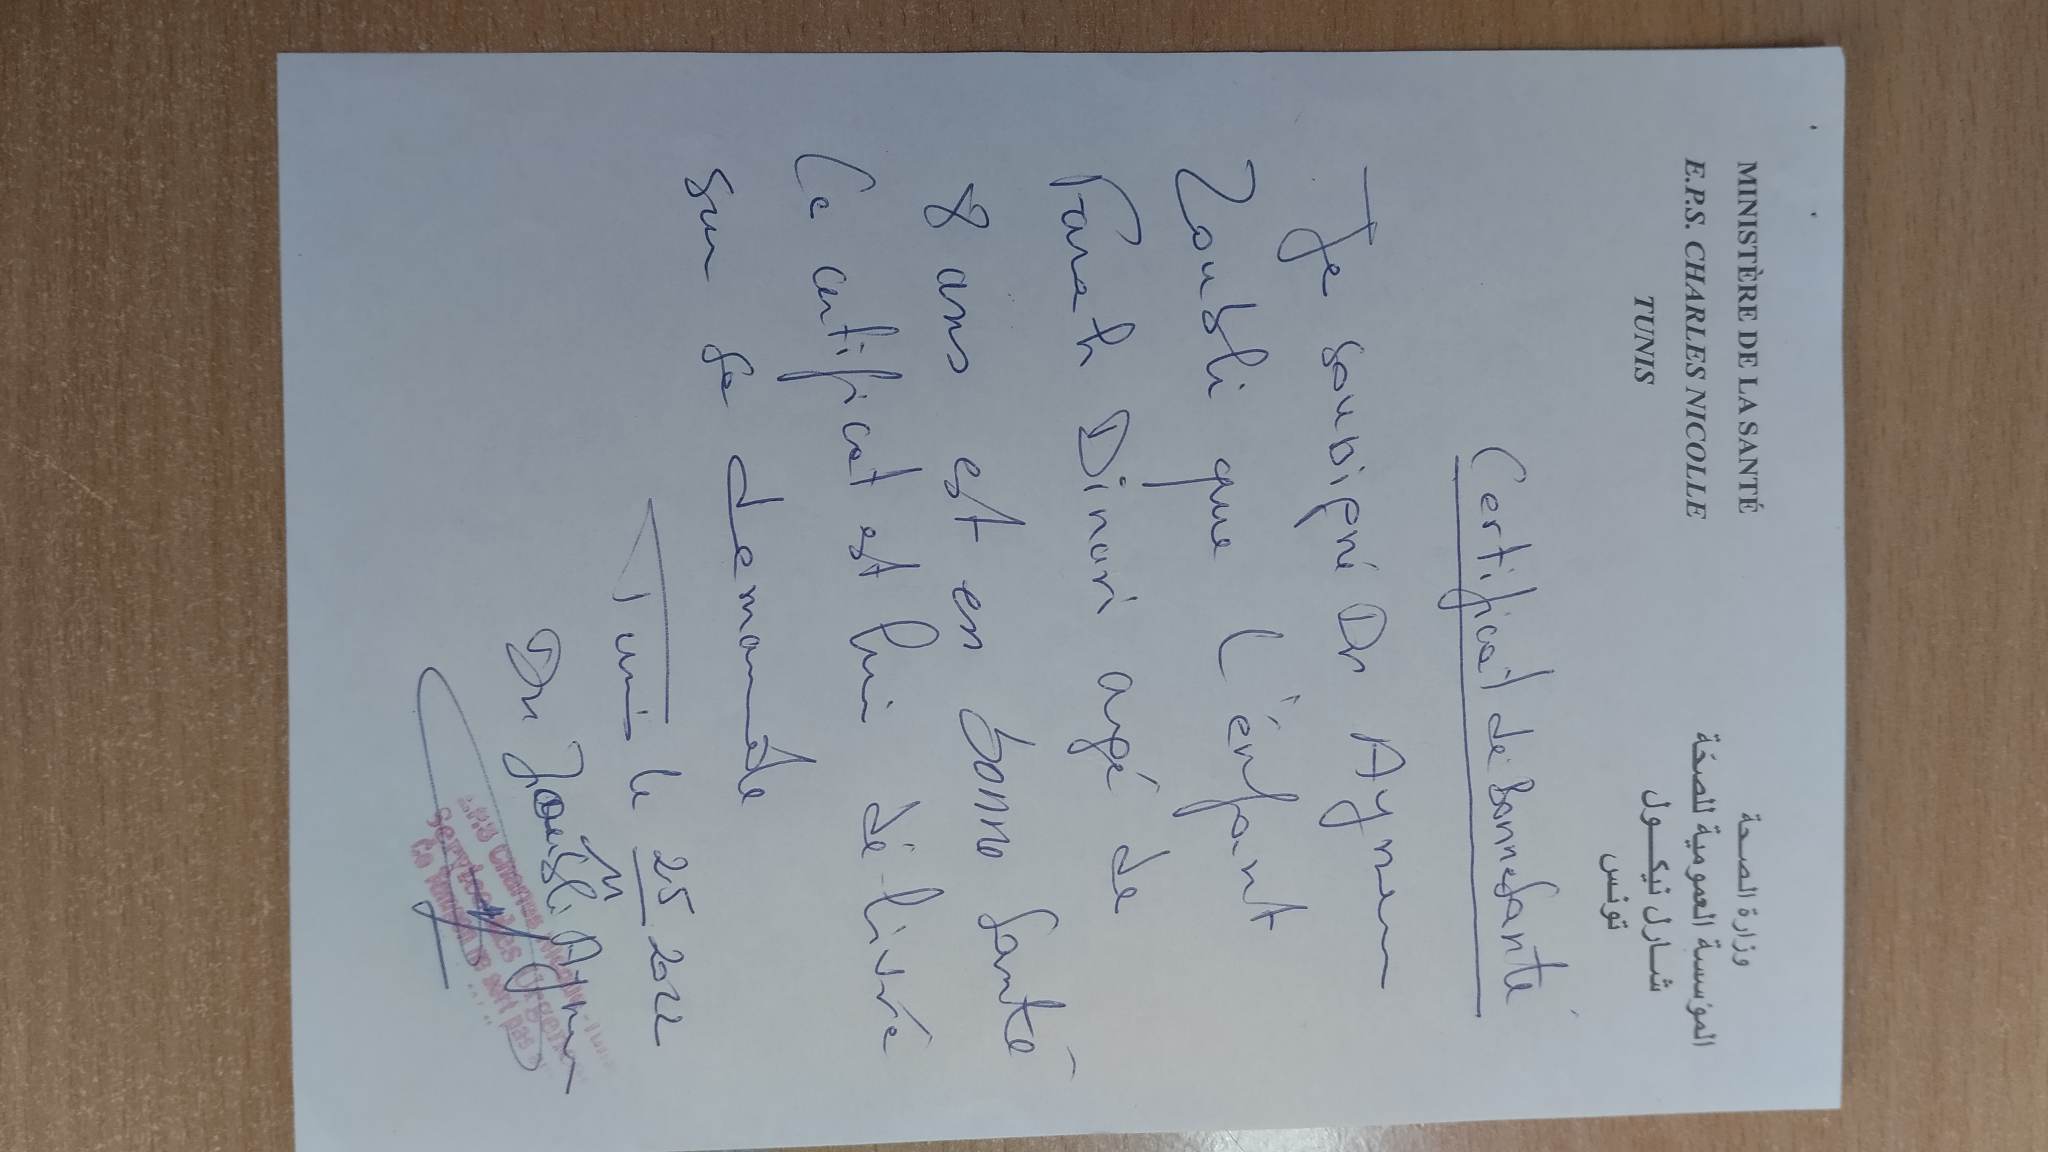 MINISTÈRE DE LA SANTÉ
E.P.S. CHARLES NICOLLE
TUNIS
وزارة الصحة
المؤسسة العمومية للصحة
شارل نيكول
تونس
Certificat de Bonne Santé
Je soussigné Dr Aymen
Zoubli que l'enfant
Farah Dinari agé de
8 ans est en bonne santé
Ce certificat est lui délivré
sur sa demande
Tunis le 25 2022
Dr Zoubli Aymen
Charles Nicolle
Service des Urgences
Ce ne sert pas